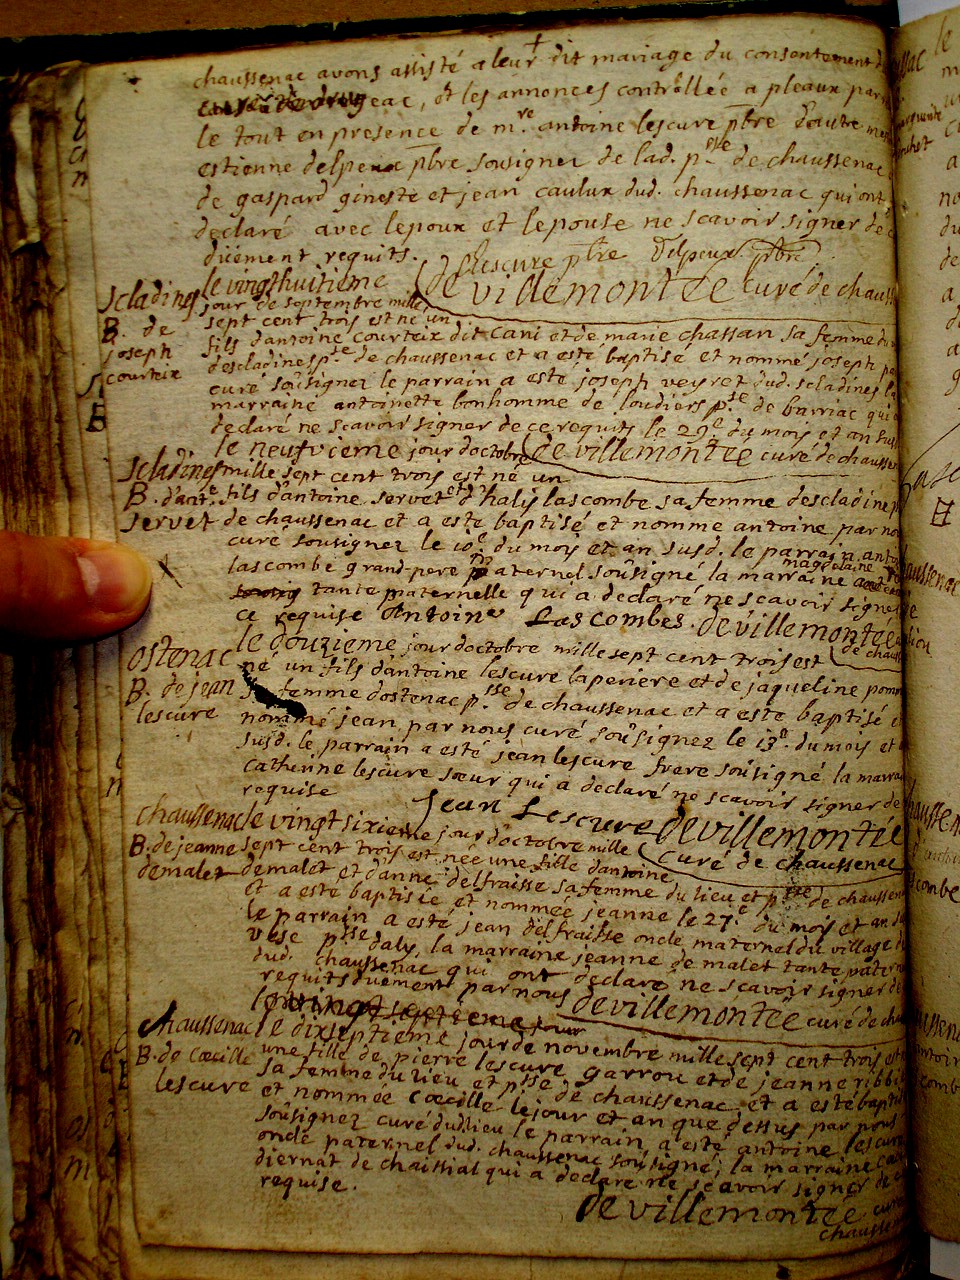 chaussenac avons assisté a leur dit mariage du consentement d
curé de drugeac, et les annonces controllée a pleaux par
le tout en presence de mre antoine lescure pbre d'autre me
estienne delpeux pbre sousignez de lad. psse de chaussenac
de gaspard gineste et jean caulux dud. chaussenac qui ont
declaré avec lepoux et lepouse ne scavoir signer de c
düement requits.
Lescure pbre Delpeux pbre
devillemontée curé de chauss
scladines
B. de
joseph
courteix
le vingthuitieme
jour de septembre mille
sept cent trois est né un
fils d'antoine courteix dit cani et de marie chassan sa femme du
descladines pse de chaussenac et a esté baptisé et nommé joseph pa
curé soûsignez le parrain a esté joseph veyret dud. scladines la
marraine antoinette bonhomme de loudiers psse de barriac qui a
declaré ne scavoir signer de ce requits le 29e du mois et an sus
devillemontée curé de chaussen
scladines
B. d'ante
servet
le neufvieme jour doctobre
mille sept cent trois est né un
fils d'antoine servet et d'halis lascombe sa femme descladine p
de chaussenac et a esté baptisé et nommé antoine par no
curé sousignez le 10e du mois et an susd. le parrain anto
lascombe grand-pere paternel soûsigné la marraine magdelaine
tante maternelle qui a declaré ne scavoir signer
ce requise Antoine Lascombes. devillemontée
de chauss
ostenac
B. de jean
lescure
le douzieme jour doctobre mille sept cent trois est
né un fils d'antoine lescure laperiere et de jaqueline pom
sa femme dostenac psse de chaussenac et a esté baptisé e
nommé jean par nous curé soûsignez le 13e. du mois et a
susd. le parrain a esté jean lescure frere soûsigné la marra
catherine lescure sœur qui a declaré ne scavoir signer de
requise
Jean Lescure devillemontée
curé de chaussenac
chaussenac
B. de jeanne
demalet
le vingt sixieme jour d'octobre mille
sept cent trois est née une fille d'antoine
demalet et d'anne delfraisse sa femme du lieu et psse de chaussen
et a esté baptisée et nommée jeanne le 27e du mois et an s
le parrain a esté jean delfraisse oncle maternel du village d
vese psse daly, la marraine jeanne de malet tante pater
dud. chaussenac qui ont declaré ne scavoir signer de
requits düement par nous devillemontée curé de cha
chaussenac
B. de cœcille
lescure
le dixseptieme jour de novembre mille sept cent trois est
une fille de pierre lescure garrou et de jeanne ribbi
sa femme du lieu et psse de chaussenac et a esté bapti
et nommée cœcille le jour et an que dessus par nous
soûsignez curé dud. lieu le parrain a esté antoine lescure
oncle paternel dud. chaussenac soûsigné; la marraine
diernat de chaissial qui a declaré ne scavoir signer de c
requise.
devillemontée curé
chaussen